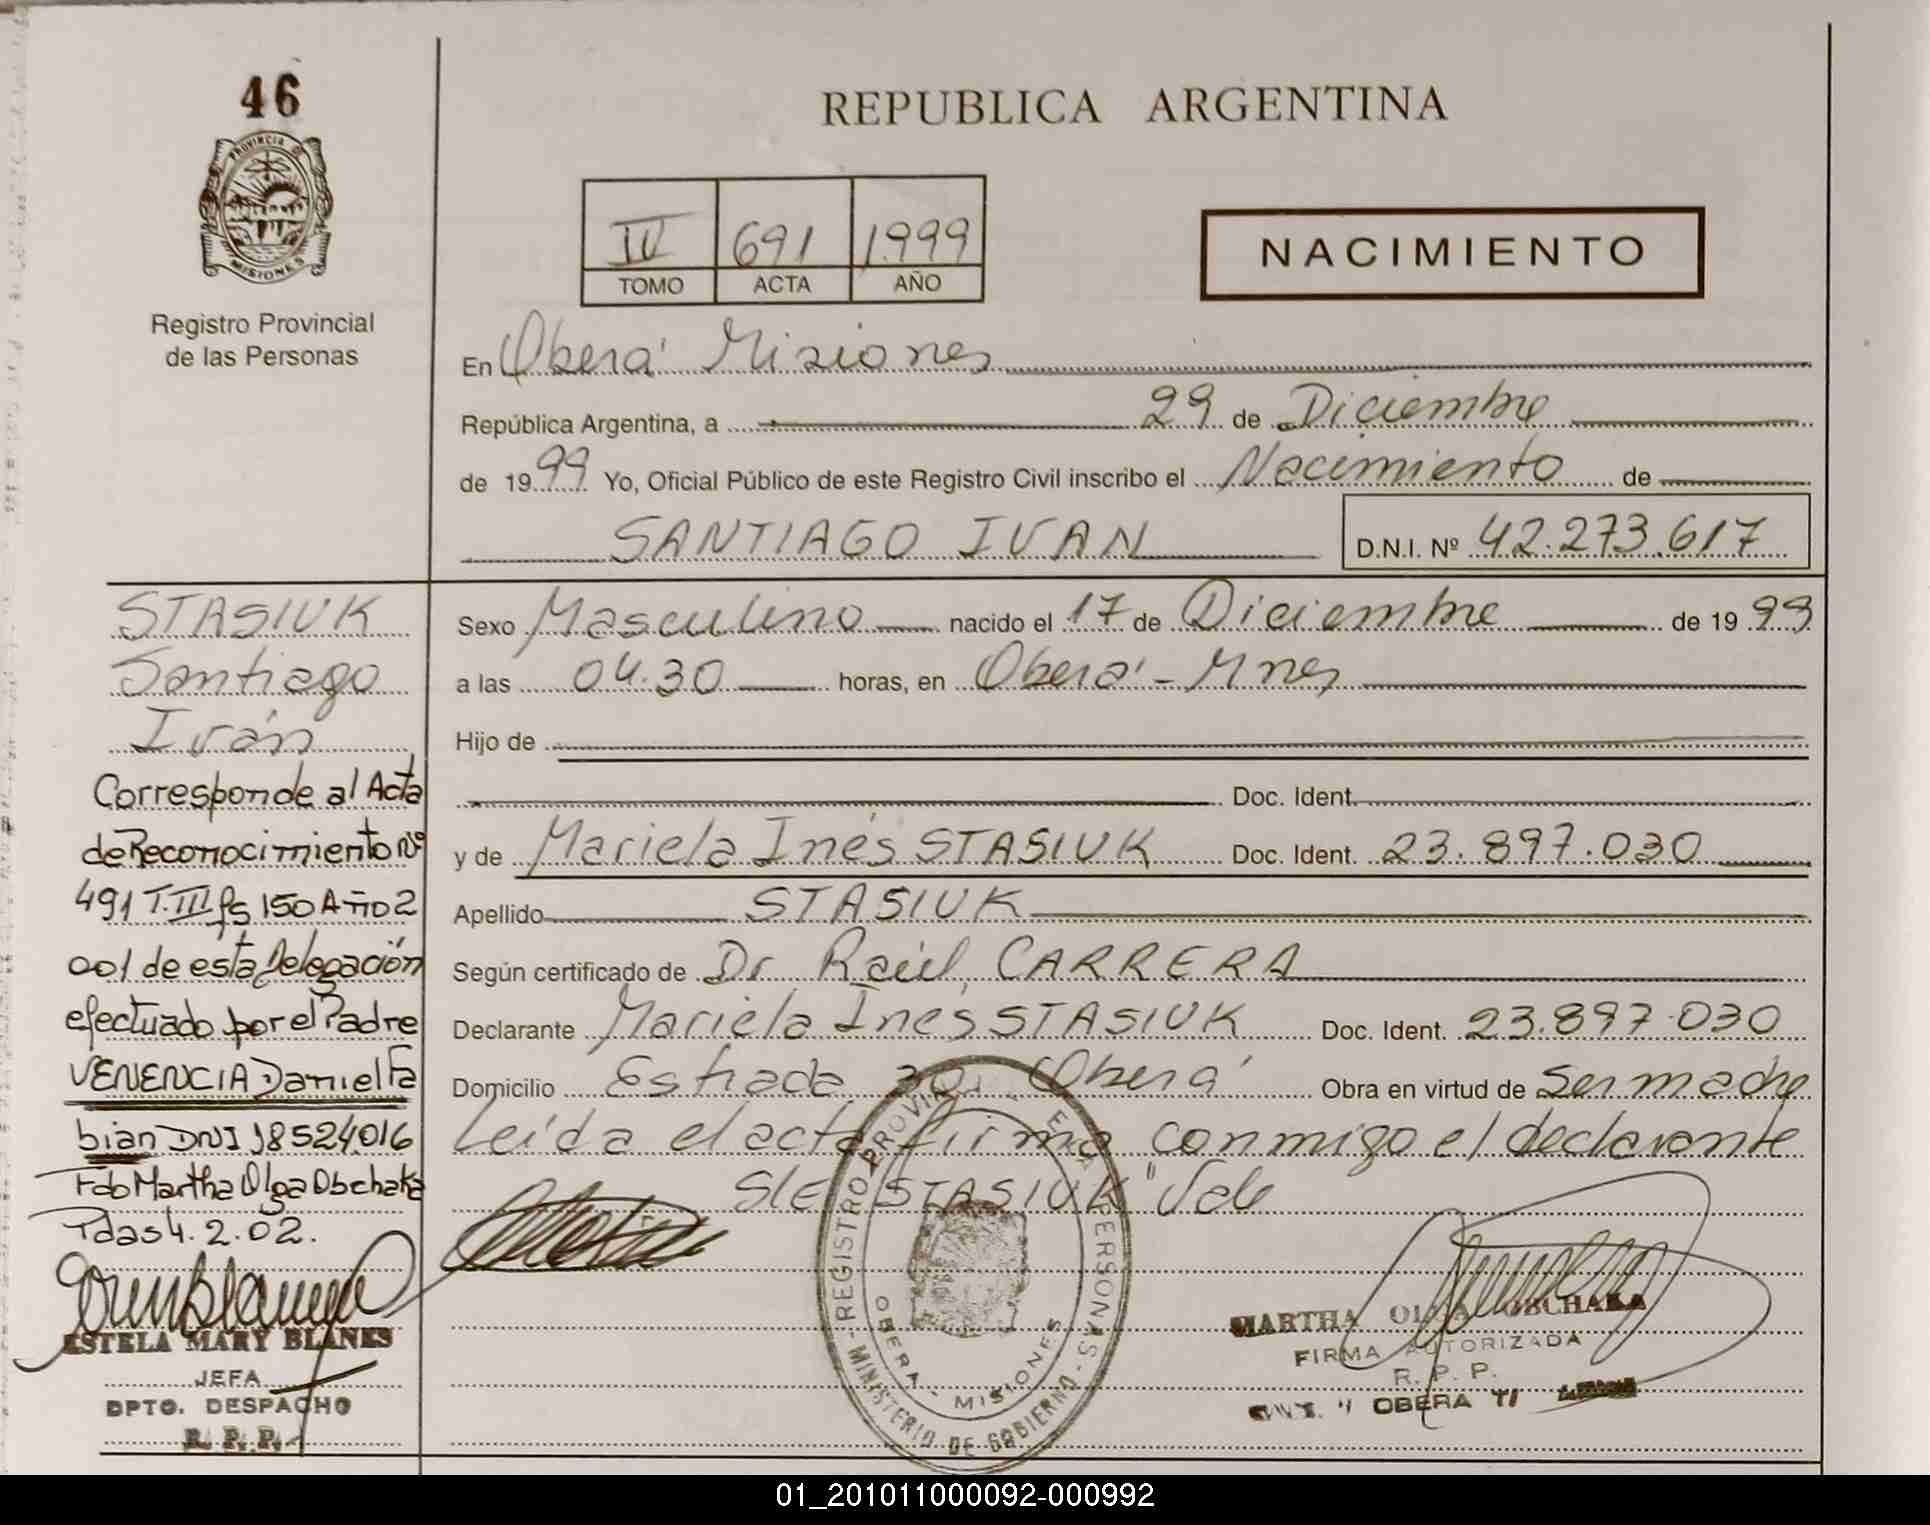 46
PROVINCIA D
MISIONES
Registro Provincial
de las Personas
REPUBLICA ARGENTINA
IV 691 1.999
TOMO ACTA AÑO
NACIMIENTO
En Oberá Misiones
República Argentina, a 29 de Diciembre
de 1999 Yo, Oficial Público de este Registro Civil inscribo el Nacimiento de
SANTIAGO IVAN D.N.I. Nº 42.273.617
STASIUK
Santiago
Iván
Corresponde al Acta
de Reconocimiento Nº
491 T.III fs 150 Año 2
001 de esta Delegación
efectuado por el Padre
VENENCIA Daniel Fa
bian DNI 18524.016
Fdo Martha Olga Obchaka
Pdas 4.2.02.
ESTELA MARY BLANES
JEFA
DPTO. DESPACHO
R. P. P.
Sexo Masculino nacido el 17 de Diciembre de 1999
a las 04.30 horas, en Oberá - Mnes
Hijo de
Doc. Ident.
y de Mariela Inés STASIUK Doc. Ident. 23.897.030
Apellido STASIUK
Según certificado de Dr Raúl CARRERA
Declarante Mariela Inés STASIUK Doc. Ident. 23.897.030
Domicilio Estrada Oberá Obra en virtud de Ser madre
Leída el acta firma conmigo el declarante
S/E "STASIUK" Vale
REGISTRO PROVINCIAL DE LAS PERSONAS
OBERA - MISIONES
MINISTERIO DE GOBIERNO
MARTHA OLGA OBCHAKA
FIRMA AUTORIZADA
R. P. P.
OBERA
01_201011000092-000992